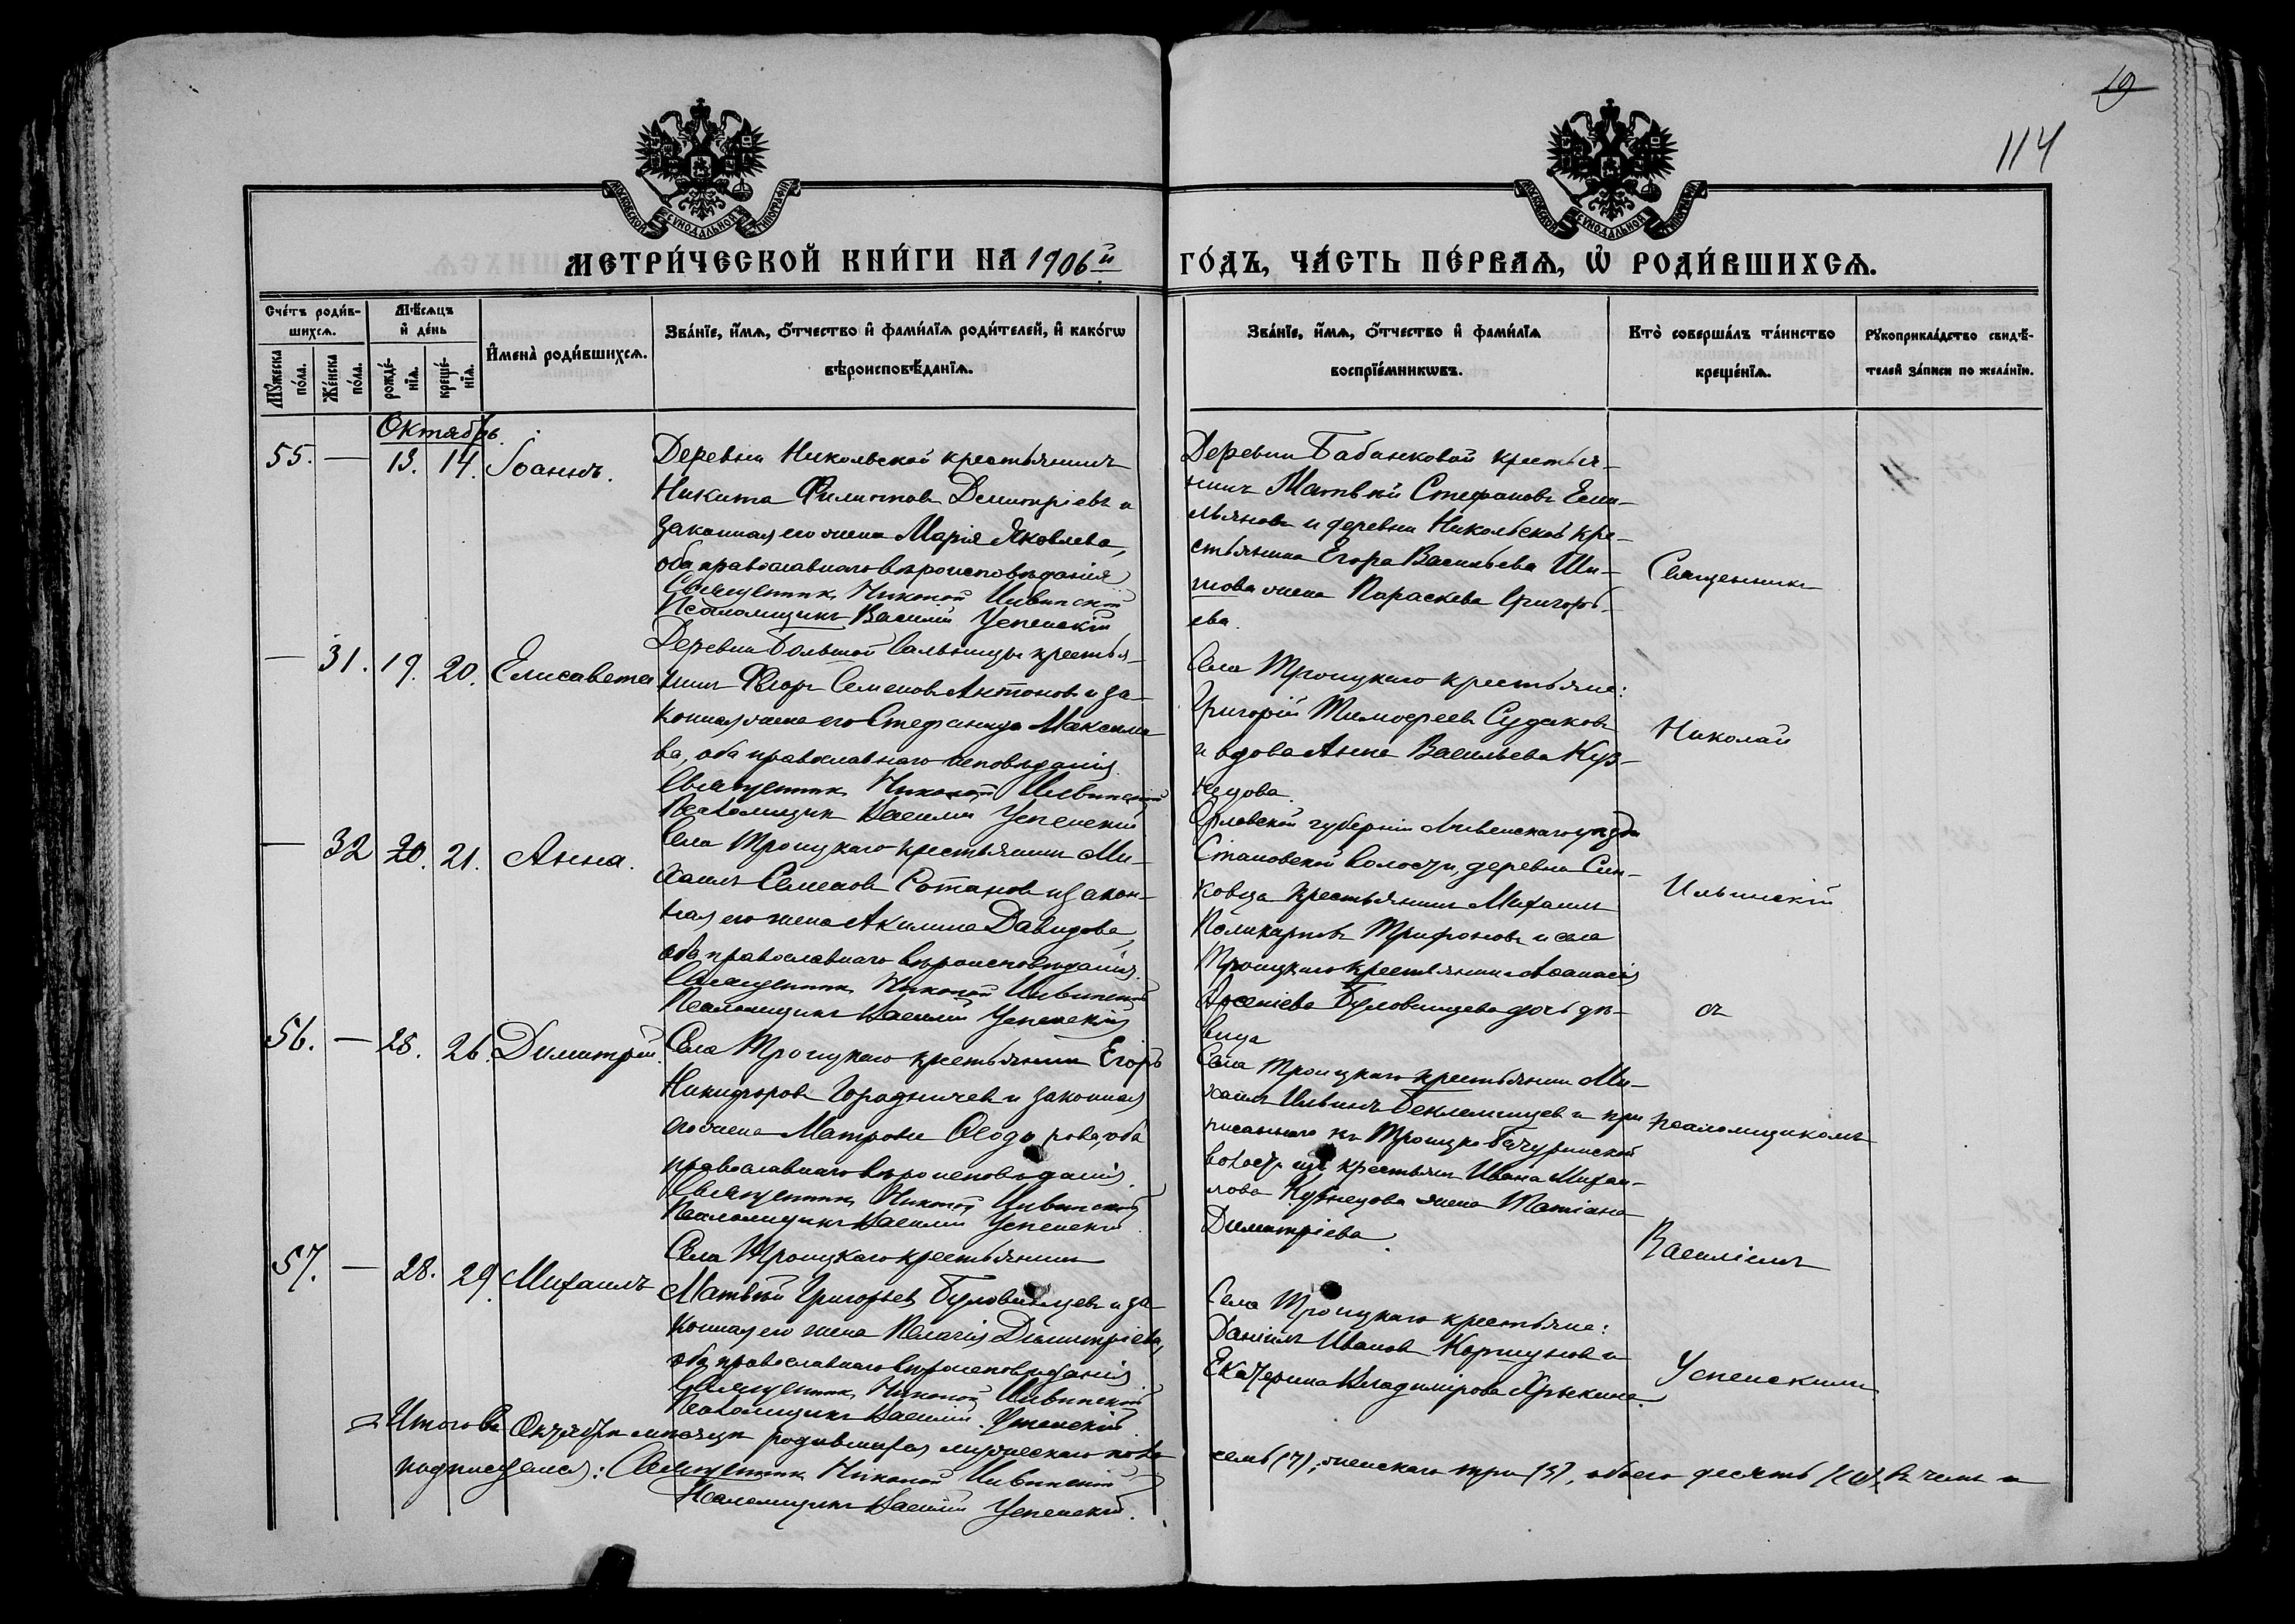 19
114
МОСКОВСКОЙ СѴНОДАЛЬНОЙ ТИПОГРАФІИ
МОСКОВСКОЙ СѴНОДАЛЬНОЙ ТИПОГРАФІИ
МЕТРИ́ЧЕСКОЙ КНИ́ГИ НА 1906й ГО́ДЪ, ЧА́СТЬ ПЕ́РВАѦ, Ѡ҆ РОДИ́ВШИХСѦ.
Сче́тъ роди́в-
шихсѧ.
Мѣ́сѧцъ
и҆ де́нь
Мꙋ́жеска по́ла.
Же́нска по́ла.
рожде́-нїѧ.
креще́-нїѧ.
И҆мена̀ роди́вшихсѧ.
Зва́нїе, и҆́мѧ, ѻ҆́тчество и҆ фами́лїѧ роди́телей, и҆ како́гѡ
вѣроисповѣ́данїѧ.
Зва́нїе, и҆́мѧ, ѻ҆́тчество и҆ фами́лїѧ
воспрїе́мникѡвъ.
Кто̀ соверша́лъ та́инство
креще́нїѧ.
Рꙋкоприкла́дство свидѣ́-
телей за́писи по жела́нїю.
Октябрь.
55. — 13. 14. Іоаннъ.
Деревни Никольской крестьянинъ
Никита Филиппов Димитріевъ и
законная его жена Марія Яковлева,
оба православнаго вѣроисповѣданія
Священник Николай Ильинскій
Псаломщикъ Василій Успенскій
Деревни Бабинковой крестья-
нинъ Матвѣй Стефановъ Еме-
льяновъ и деревни Никольской кре-
стьянина Егора Васильева Ши-
това жена Параскева Григорь-
ева.
— 31. 19. 20. Елисавета
Деревни Большой Сальницы крестья-
нинъ Ѳеоръ Семеновъ Антоновъ и за-
конная жена его Стефанида Максимо-
ва, оба православнаго исповѣданія.
Священник Николай Ильинскій
Псаломщик Василій Успенскій
Села Троицкаго крестьяне:
Григорій Тимоѳеевъ Судаковъ
и вдова Анна Васильева Куз-
нецова.
— 32 20. 21. Анна.
Села Троицкаго крестьянинъ Ми-
хаилъ Семеновъ Сотановъ и закон-
ная его жена Акилина Давидова,
оба православнаго вѣроисповѣданія.
Священник Николай Ильинскій
Псаломщикъ Василій Успенскій
Орловской губерніи Ливенскаго уѣзда
Становской волости, деревни Син-
ковца крестьянинъ Михаилъ
Поликарповъ Трифоновъ и села
Троицкаго крестьянина Аѳанасія
Арсеніева Буловинцева дочь дѣ-
вица
56. — 25. 26. Димитрій.
Села Троицкаго крестьянинъ Егоръ
Никифоровъ Городничевъ и законная
его жена Матрона Ѳеодорова, оба
православнаго вѣроисповѣданія.
Священник Николай Ильинскій
Псаломщикъ Василій Успенскій
Села Троицкаго крестьянин Ми-
хаилъ Ильинъ Беклемищев и при
писаннаго къ Троицко-Бачуринской
волости из крестьян Ивана Михаи-
лова Кузнецова жена Татіана
Димитріева.
57. — 28. 29. Михаилъ
Села Троицкаго крестьянинъ
Матвѣй Григорьев Буловинцевъ и за-
конная его жена Пелагія Димитріева,
оба православнаго вѣроисповѣданія
Священник Николай Ильинскій
Псаломщикъ Василій Успенскій
Села Троицкаго крестьяне:
Даніилъ Иванов Коршунов и
Екатерина Владимірова Хрыкина.
Священникъ
Николай
Ильинскій
съ
псаломщикомъ
Василіемъ
Успенскимъ
Итого въ Октябрѣ мѣсяцѣ родившихся мужескаго пола семь (7), женскаго три (3), обоего десять (10), въ чемъ и
подписуемся: Священник Николай Ильинскій
Псаломщикъ Василій Успенскій.